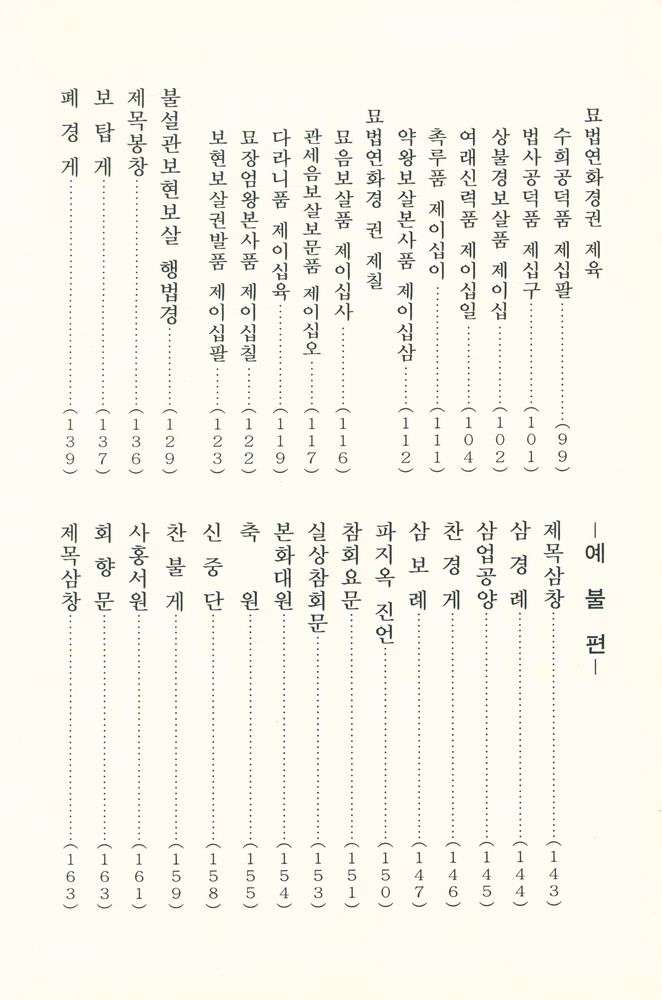 묘법연화경권 제육
수희공덕품 제십팔……………(99)
법사공덕품 제십구……………(101)
상불경보살품 제이십……………(102)
여래신력품 제이십일……………(104)
촉루품 제이십이……………(111)
약왕보살본사품 제이십삼……………(112)
묘법연화경 권 제칠
묘음보살품 제이십사……………(116)
관세음보살보문품 제이십오……………(117)
다라니품 제이십육……………(119)
묘장엄왕본사품 제이십칠……………(122)
보현보살권발품 제이십팔……………(123)
불설관보현보살 행법경……………(129)
제목봉창……………(136)
보 탑 게……………(137)
폐 경 게……………(139)
-예 불 편-
제목삼창……………(143)
삼 경 례……………(144)
삼업공양……………(145)
찬 경 게……………(146)
삼 보 례……………(147)
파지옥 진언……………(150)
참회요문……………(151)
실상참회문……………(153)
본화대원……………(154)
축 원……………(155)
신 중 단……………(158)
찬 불 게……………(159)
사홍서원……………(161)
회 향 문……………(163)
제목삼창……………(163)